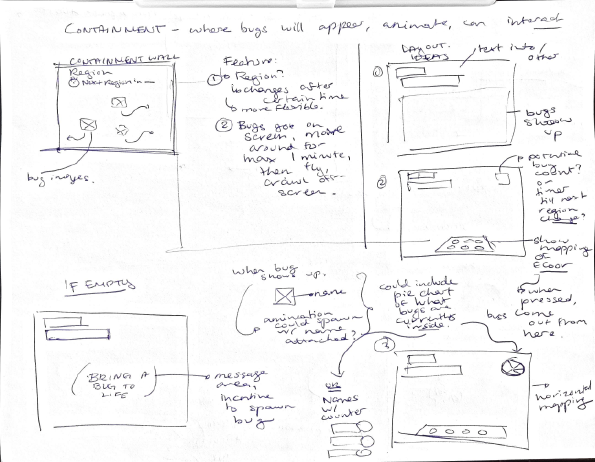 CONTAINMENT - where bugs will appear, animate, can interact
CONTAINMENT WALL
Region
Next Region in —
bug images.
Feature:
① Region?
↳ changes after
certain time
↳ more flexible.
② Bugs go on
screen, move
around for
max 1 minute,
then fly,
crawl off
screen.
LAYOUT
IDEAS
text info/
other
①
bugs
show
up
②
potential
bug
count?
or
timer
till next
region
change?
show
mapping
of
floor
↳ when
pressed,
bugs come
out from
here.
IF EMPTY
BRING A
BUG TO
LIFE
message
area,
incentive
to spawn
bug
when bug
shows up.
name
animation
could spawn
w/ name
attached?
could include
pie chart
of what
bugs are
currently
inside.
OR
Names
w/
counter
③
horizontal
mapping